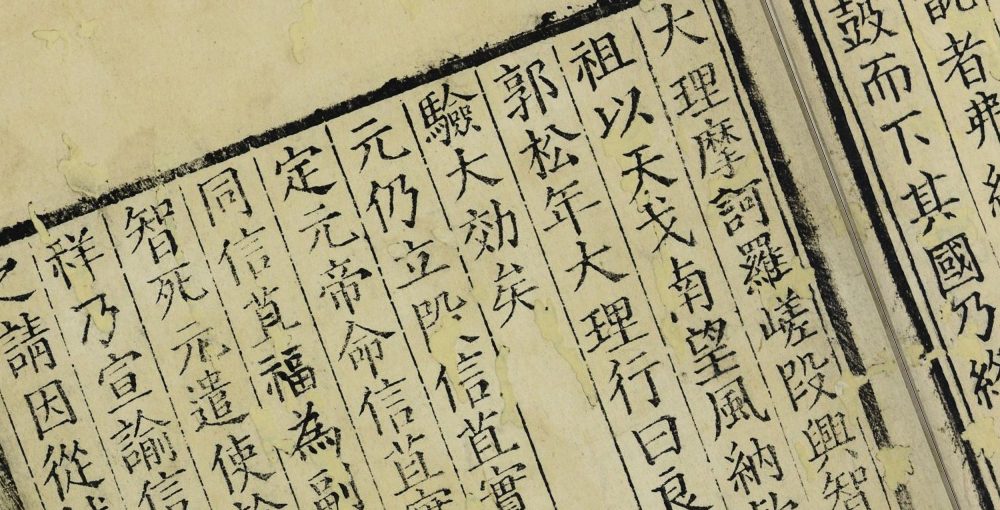 者弗
鼓而下其國乃
大理摩訶羅嵯段興智
祖以天戈南望風納
郭松年大理行曰良
驗大効矣
元仍立段信苴實
定元帝命信苴實
同信苴福為副
智死元遣使
祥乃宣諭信
請因從